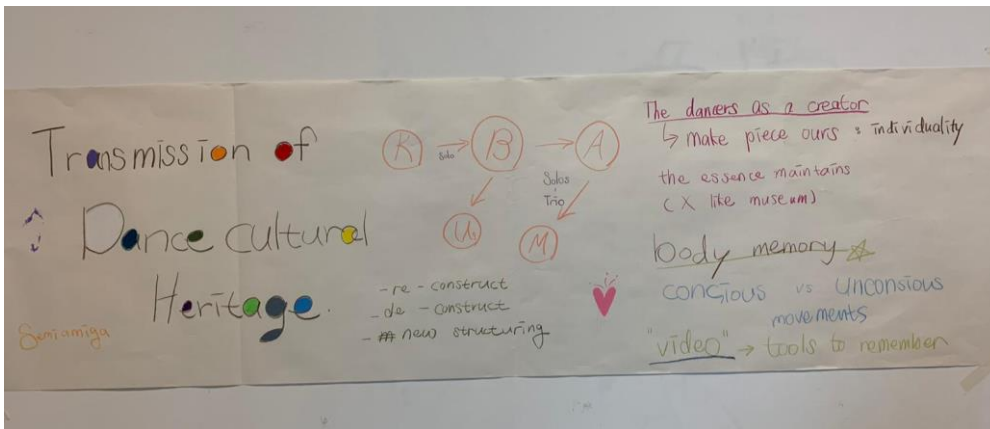 Transmission of
Dance cultural
Heritage.
Semiamiga
K
Solo
B
A
Solos
Trio
M
- re - construct
- de - construct
- new structuring
The dancers as a creator
↳ make piece ours : individuality
the essence maintains
(X like museum)
body memory
concious vs Unconsious
movements
"video" → tools to remember